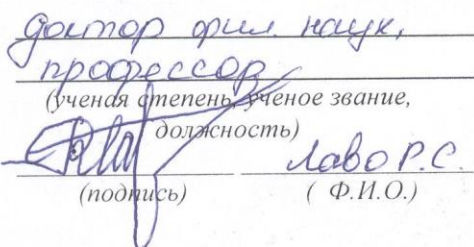 доктор фил. наук,
профессор
(ученая степень, ученое звание,
должность)
Лабо Р.С.
(подпись) ( Ф.И.О.)